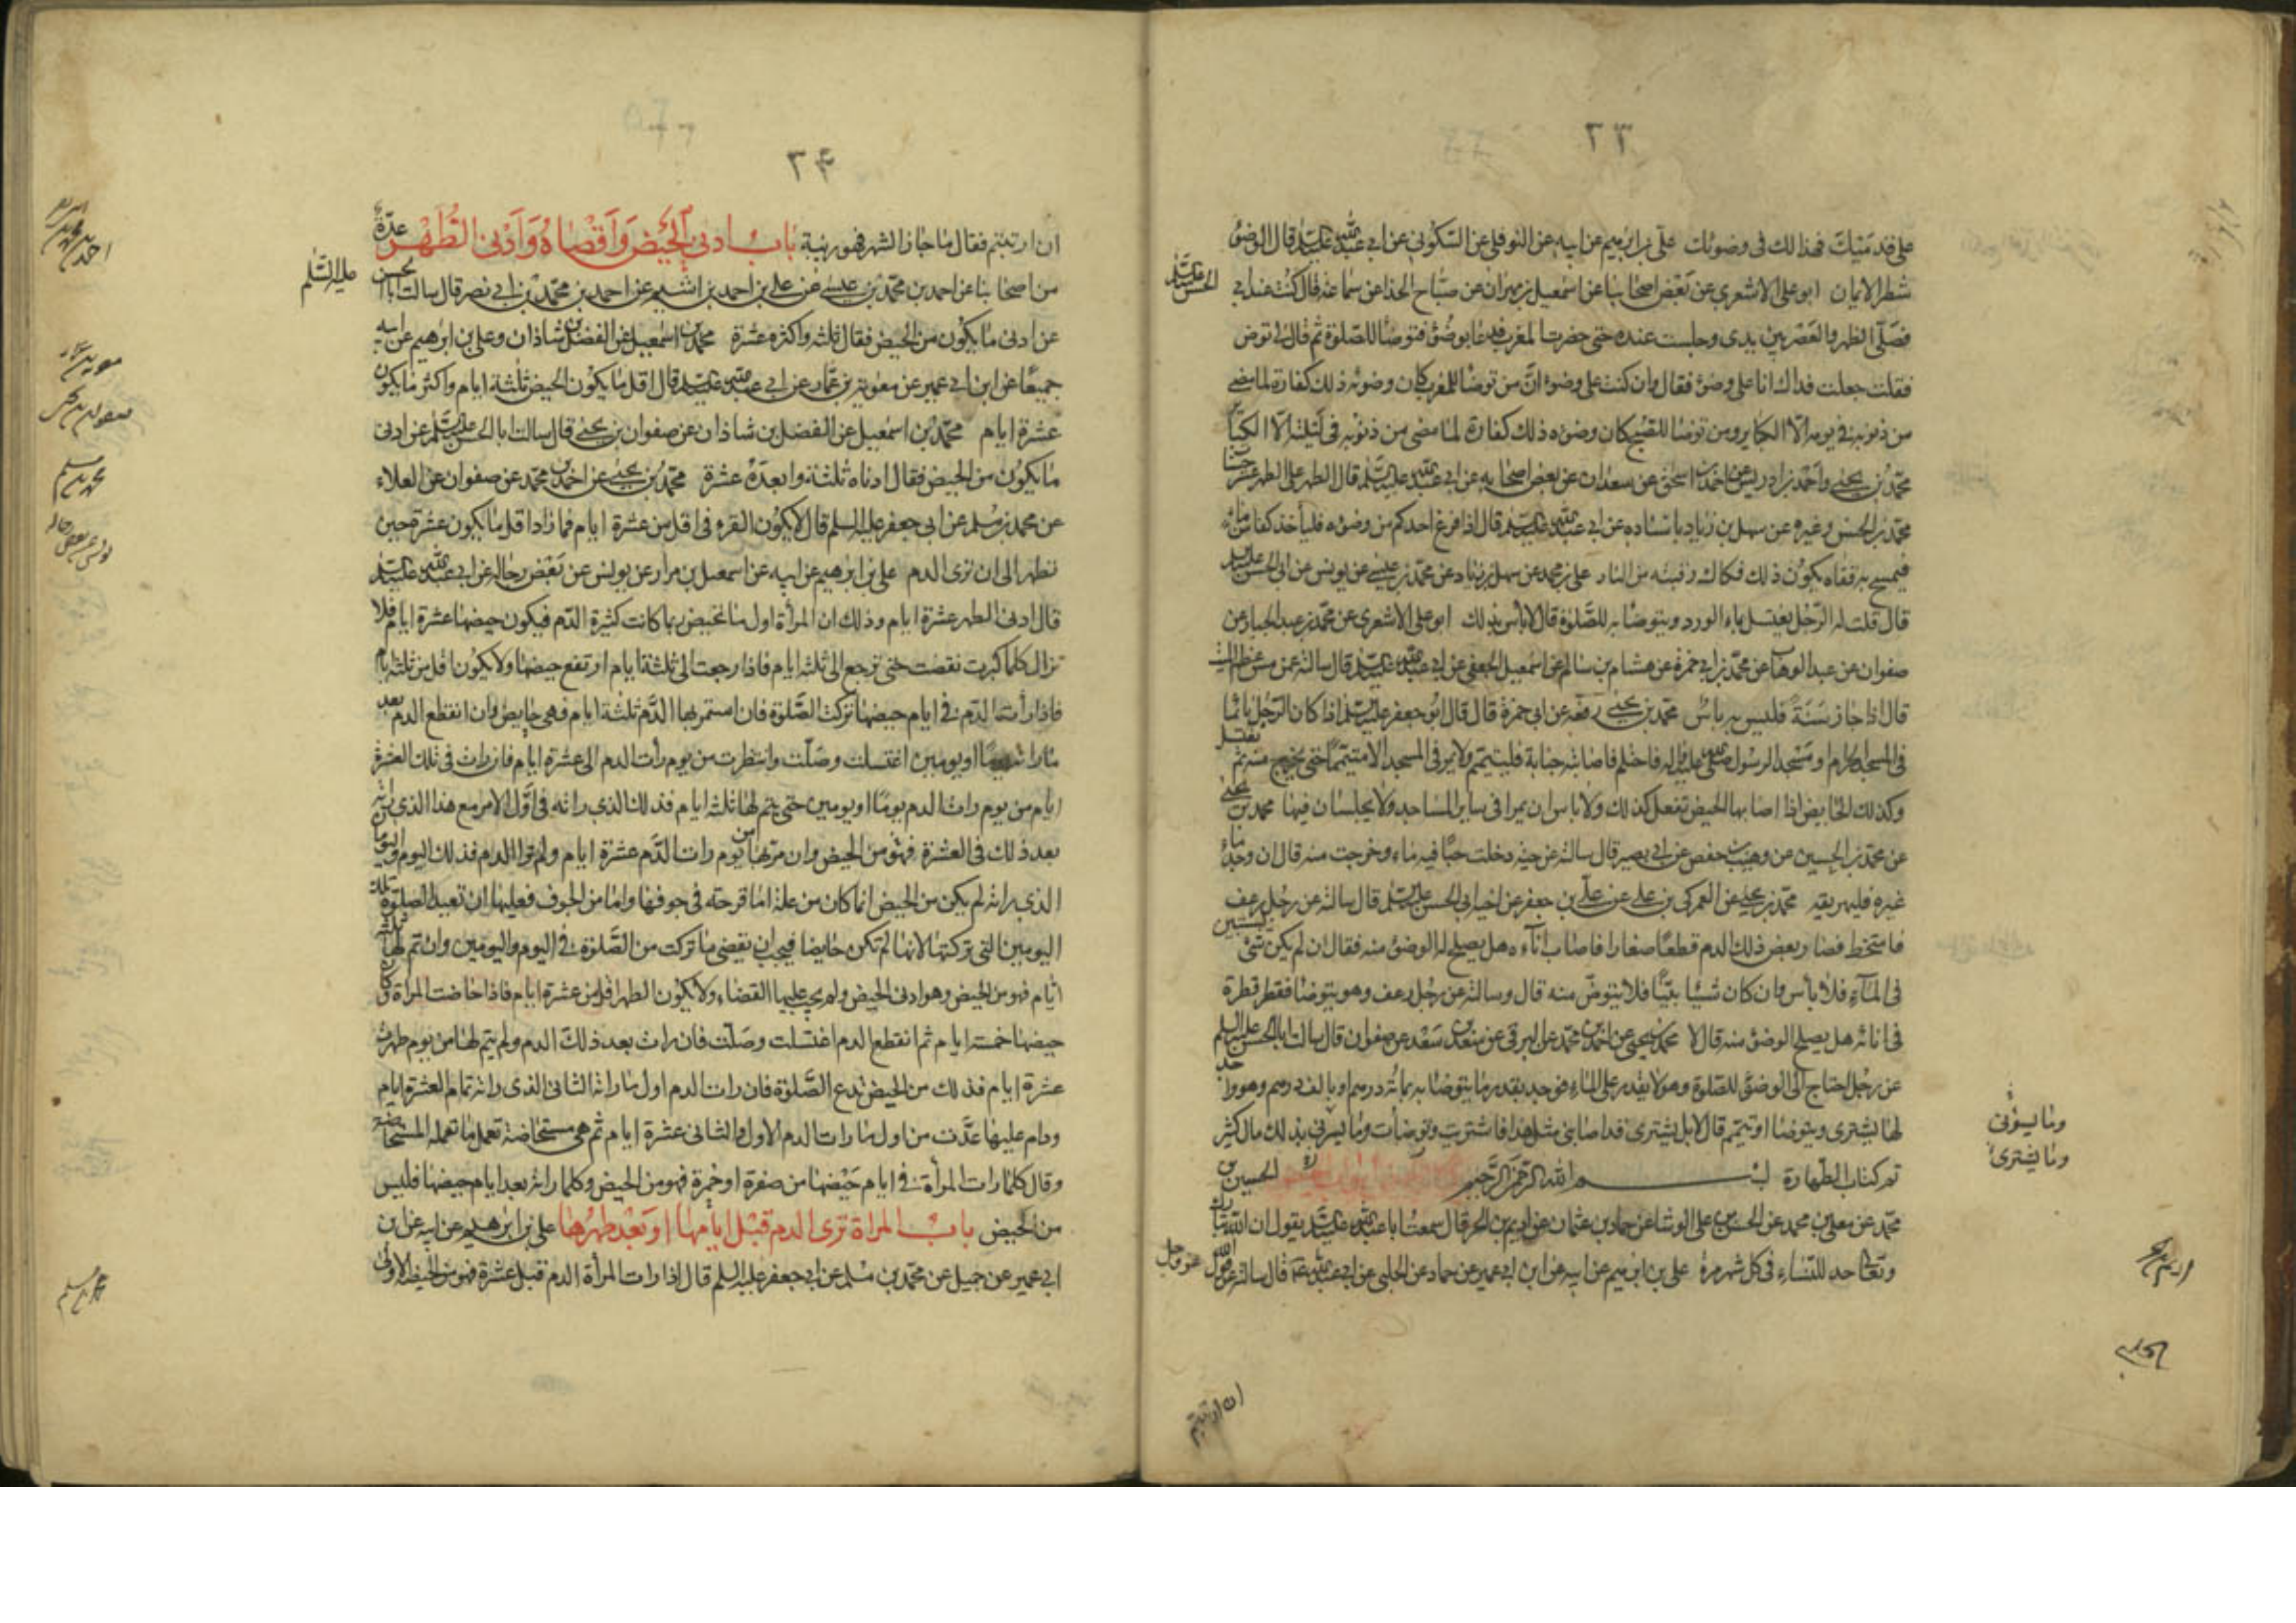 ٢٣
على قدميك فهذا لك فى وضوئك على بن ابرهيم عن ابيه عن النوفلى عن السكونى عن ابى عبد الله عليه السلم قال الوضوء
شطر الايمان ابو على الاشعرى عن بعض اصحابنا عن اسمعيل بن مهران عن صباح الحذا عن سماعة قال كنت عند ابى
الحسن عليه السلم
فصلى الظهر والعصر بين يدى وجلست عنده حتى حضرت المغرب فدعا بوضوء فتوضا للصلوة ثم قال لى توض
فقلت جعلت فداك انا على وضوء فقال وان كنت على وضوء ان من توضا للمغرب كان وضوئه ذلك كفارة لما مضى
من ذنوبه فى يومه الا الكباير ومن توضا للصبح كان وضوءه ذلك كفارة لما مضى من ذنوبه فى ليلته الا الكبائر
محمد بن يحيى واحمد بن ادريس عن احمد بن اسحق عن سعدان عن بعض اصحابه عن ابى عبد الله عليه السلم قال الطهر على الطهر عشر حسنات
محمد بن الحسن وغيره عن سهل بن زياد باسناده عن ابى عبد الله عليه السلم قال اذا فرغ احدكم من وضوءه فلياخذ كفا من ماء
فيمسح به قفاه يكون ذلك فكاك رقبته من النار على بن محمد عن سهل بن زياد عن محمد بن عيسى عن يونس عن ابى الحسن عليه السلم
قال قلت له الرجل يغتسل بماء الورد ويتوضا به للصلوة قال لا باس بذلك ابو على الاشعرى عن محمد بن عبد الجبار عن
صفوان عن عبد الوهاب عن محمد بن ابى حمزة عن هشام بن سالم عن اسمعيل الجعفى عن ابى عبد الله عليه السلم قال سالته عمن مس عظم الميت
قال اذا جاز سنة فليس به باس محمد بن يحيى رفعه عن ابى حمزة قال قال ابو جعفر عليه السلم اذا كان الرجل نائما
فى المسجد الحرام او مسجد الرسول صلى الله عليه واله فاحتلم فاصابته جنابة فليتيمم ولا يمر فى المسجد الا متيمما حتى يخرج منه ثم يغتسل
وكذلك الحايض اذا اصابها الحيض تفعل كذلك ولا باس ان يمرا فى ساير المساجد ولا يجلسان فيها محمد بن يحيى
عن محمد بن الحسين عن وهيب بن حفص عن ابى بصير قال سالته عن حية دخلت حبا فيه ماء وخرجت منه قال ان وجد ماء
غيره فليهريقه محمد بن يحيى عن العمركى بن على عن على بن جعفر عن اخيه ابى الحسن عليه السلم قال سالته عن رجل رعف
فامتخط فصار بعض ذلك الدم قطعا صغارا فاصاب اناءه هل يصلح له الوضوء منه فقال ان لم يكن شئ يستبين
فى الماء فلا باس وان كان شيئا بينا فلا يتوض منه قال وسالته عن رجل رعف وهو يتوضا فقطر قطرة
فى انائه هل يصلح الوضوء منه قال لا محمد بن يحيى عن احمد بن محمد عن البرقى عن سعد بن سعد عن صفوان قال سالت ابا الحسن عليه السلم
عن رجل احتاج الى الوضوء للصلوة وهو لا يقدر على الماء فوجد بقدر ما يتوضا به بمائة درهم او بالف درهم وهو واجد
لها يشترى ويتوضا او يتيمم قال لا بل يشترى قد اصابنى مثل هذا فاشتريت وتوضات وما يسرنى بذلك مال كثير
وما يسوئنى
وما يشترى
تم كتاب الطهارة بسم الله الرحمن الرحيم الحسين بن
محمد عن معلى بن محمد عن الحسن بن على الوشا عن حماد بن عثمان عن اديم بن الحر قال سمعت ابا عبد الله عليه السلم يقول ان الله تبارك
وتعالى حد للنساء فى كل شهر مرة على بن ابرهيم عن ابيه عن ابن ابى عمير عن حماد عن الحلبى عن ابى عبد الله قال سالته عن قول الله عز وجل
ان ارتبتم
٢۴
ان ارتبتم فقال ما جاز الشهر فهو ريبة باب ادنى الحيض واقصاه وادنى الطهر عدة
من اصحابنا عن احمد بن محمد بن عيسى عن على بن احمد بن اشيم عن احمد بن محمد بن ابى نصر قال سالت ابا الحسن
عليه السلم
عن ادنى ما يكون من الحيض فقال ثلثه واكثره عشرة محمد بن اسمعيل عن الفضل بن شاذان وعلى بن ابرهيم عن ابيه
جميعا عن ابن ابى عمير عن معوية بن عمار عن ابى عبد الله عليه السلم قال اقل ما يكون الحيض ثلثة ايام واكثر ما يكون
عشرة ايام محمد بن اسمعيل عن الفضل بن شاذان عن صفوان بن يحيى قال سالت ابا الحسن عليه السلم عن ادنى
ما يكون من الحيض فقال ادناه ثلثة وابعده عشرة محمد بن يحيى عن احمد بن محمد عن صفوان عن العلاء
عن محمد بن مسلم عن ابى جعفر عليه السلم قال لا يكون القرء فى اقل من عشرة ايام فما زاد اقل ما يكون عشرة حين
تطهر الى ان ترى الدم على بن ابرهيم عن ابيه عن اسمعيل بن مرار عن يونس عن بعض رجاله عن ابى عبد الله عليه السلم
قال ادنى الطهر عشرة ايام وذلك ان المراة اول ما تحيض ربما كانت كثيرة الدم فيكون حيضها عشرة ايام فلا
تزال كلما كبرت نقصت حتى ترجع الى ثلثه ايام فاذا رجعت الى ثلثة ايام ارتفع حيضها ولا يكون اقل من ثلثه ايام
فاذا رأت الدم فى ايام حيضها تركت الصلوة فان استمر بها الدم ثلثة ايام فهى حايض وان انقطع الدم بعد
ما راته يوما او يومين اغتسلت وصلت وانتظرت من يوم رأت الدم الى عشرة ايام فان رات فى تلك العشرة
ايام من يوم رات الدم يوما او يومين حتى يتم لها ثلثه ايام فذلك الذى راته فى اول الامر مع هذا الذى راته
بعد ذلك فى العشرة فهو من الحيض وان مر بها من يوم رات الدم عشرة ايام ولم تر الدم فذلك اليوم واليومان
الذى راته لم يكن من الحيض انما كان من علة اما قرحته فى جوفها واما من الجوف فعليها ان تعيد الصلوة تلك
اليومين التى تركتها لانها لم تكن حايضا فيجب ان تقضى ما تركت من الصلوة فى اليوم واليومين وان تم لها ثلثه
ايام فهو من الحيض وهو ادنى الحيض ولم يجب عليها القضاء ولا يكون الطهر اقل من عشرة ايام فاذا حاضت المراة وكان
حيضها خمسه ايام ثم انقطع الدم اغتسلت وصلت فان رات بعد ذلك الدم ولم يتم لها من يوم طهرت
عشرة ايام فذلك من الحيض تدع الصلوة فان رات الدم اول ما راته الثانى الذى راته تمام العشرة ايام
ودام عليها عدت من اول ما رات الدم الاول والثانى عشرة ايام ثم هى مستحاضة تعمل ما تعمله المستحاضة
وقال كلما رات المرأة فى ايام حيضها من صفرة او حمرة فهو من الحيض وكلما راته بعد ايام حيضها فليس
من الحيض باب المراة ترى الدم قبل ايامها او بعد طهرها على بن ابرهيم عن ابيه عن ابن
ابى عمير عن جميل عن محمد بن مسلم عن ابى جعفر عليه السلم قال اذا رات المرأة الدم قبل عشرة فهو من الحيض الاولى